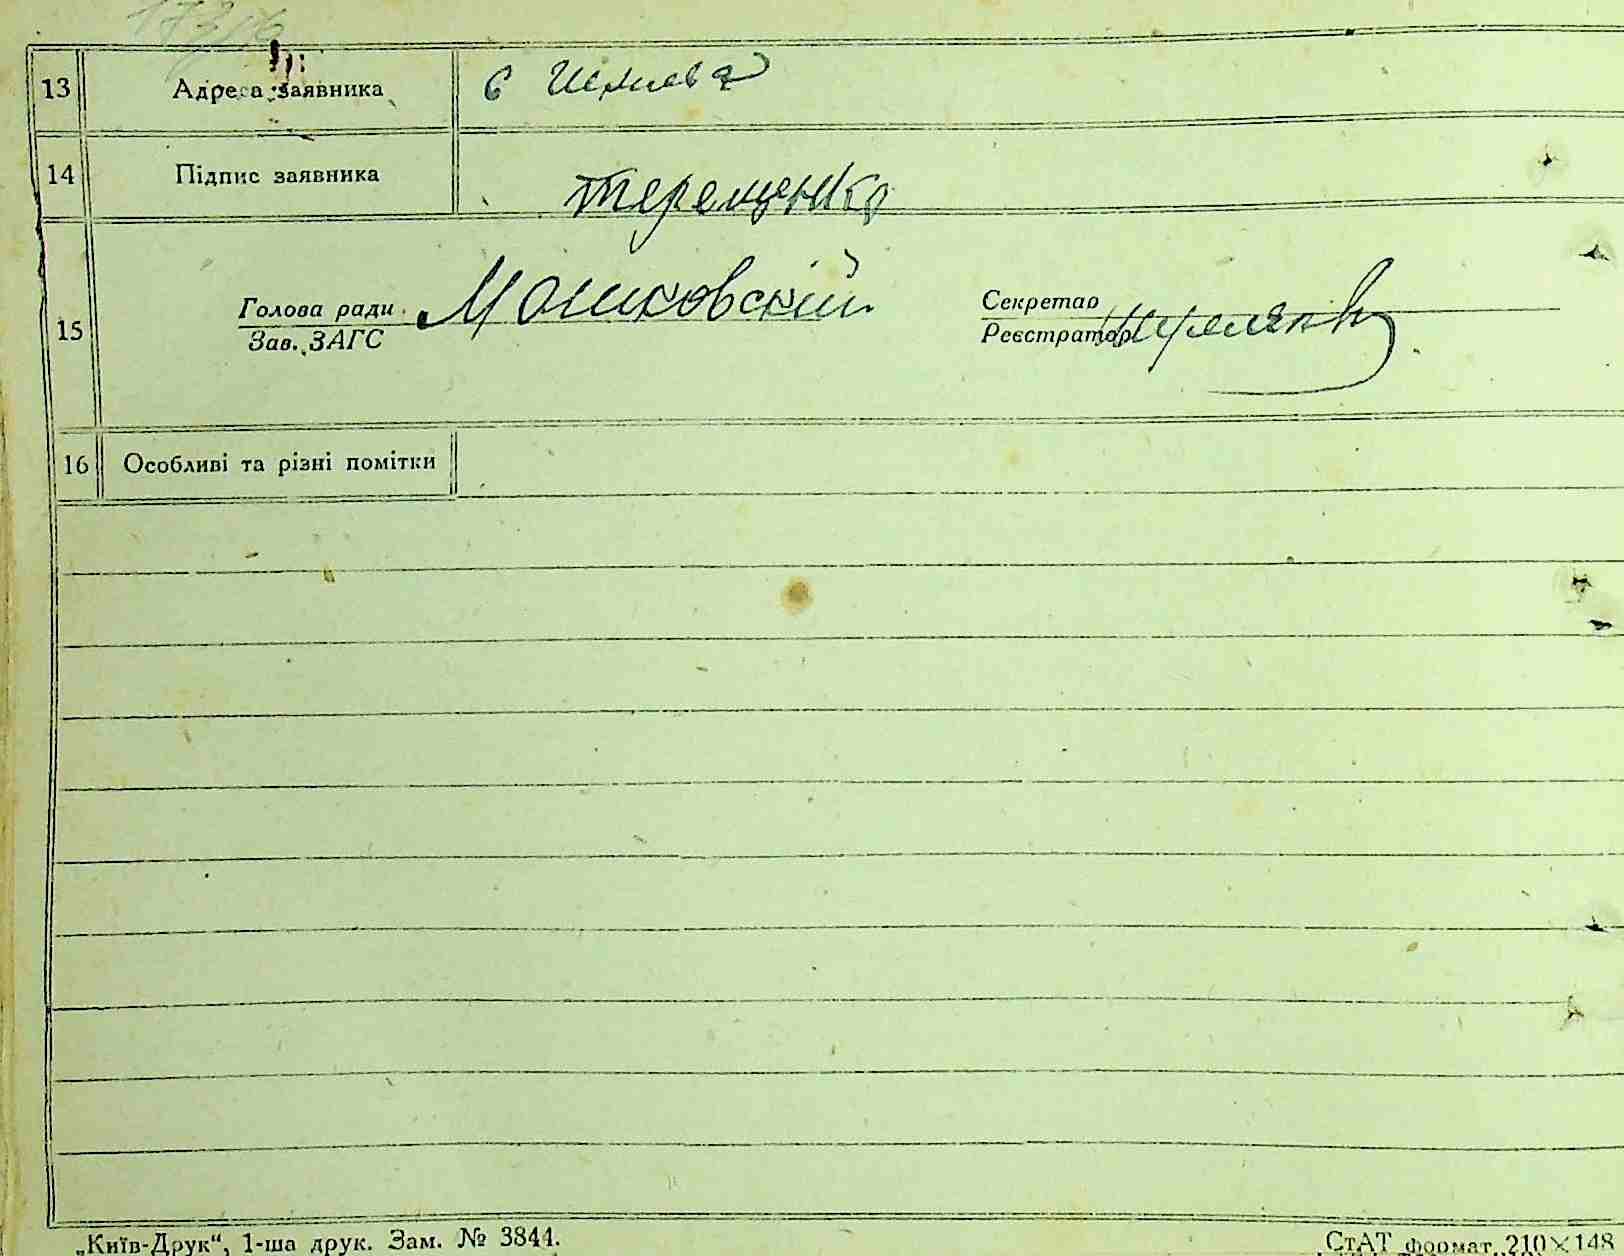 13 Адреса заявника с
14 Підпис заявника Терещенко
15 Голова ради Мошковскій Секретар
Зав. ЗАГС Реєстратор
16 Особливі та різні помітки
„Київ-Друк“, 1-ша друк. Зам. № 3844. СтАТ формат 210×148